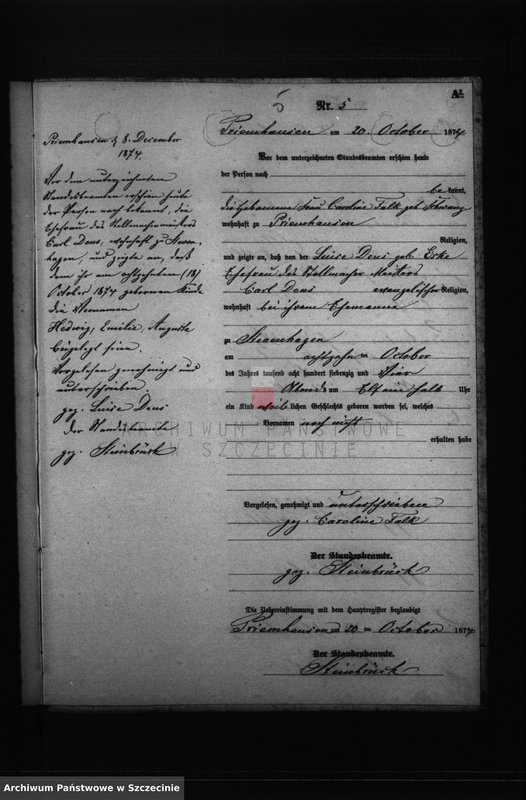 A¹.
5
Nr. 5
Priemhausen am 20 October 1874
Vor dem unterzeichneten Standesbeamten erschien heute
der Person nach
bekannt,
die Hebamme Frau Caroline Falk geb.
wohnhaft zu Priemhausen
Religion,
und zeigte an, daß von der Luise Deus geb.
Ehefrau des Stellmacher Meisters
Carl Deus evangelischer Religion,
wohnhaft bei ihrem Ehemanne
zu
am achtzehn ten October
des Jahres tausend acht hundert siebenzig und Vier
Abends um Elf ein halb Uhr
ein Kind weib lichen Geschlechts geboren worden sei, welches
Vornamen noch nicht
erhalten habe
Vorgelesen, genehmigt und unterschrieben
gez. Caroline Falk
Der Standesbeamte.
gez. Steinbrück
Die Uebereinstimmung mit dem Hauptregister beglaubigt
Priemhausen am 20 ten October 1874
Der Standesbeamte.
Steinbrück
Priemhausen d 8. December
1874.
Vor dem unterzeichneten
Standesbeamten erschien heute
der Person nach bekannt, die
Ehefrau des Stellmachermeisters
Carl Deus, wohnhaft zu
hagen, und zeigte an, daß
dem ihr am achtzehnten (18)
October 1874 geborenen Kinde
die Vornamen
Hedwig, Emilie, Augusta
beigelegt seien.
Vorgelesen genehmigt und
unterschrieben.
gez. Luise Deus
der Standesbeamte
gez. Steinbrück
ARCHIWUM PAŃSTWOWE
W SZCZECINIE
Archiwum Państwowe w Szczecinie